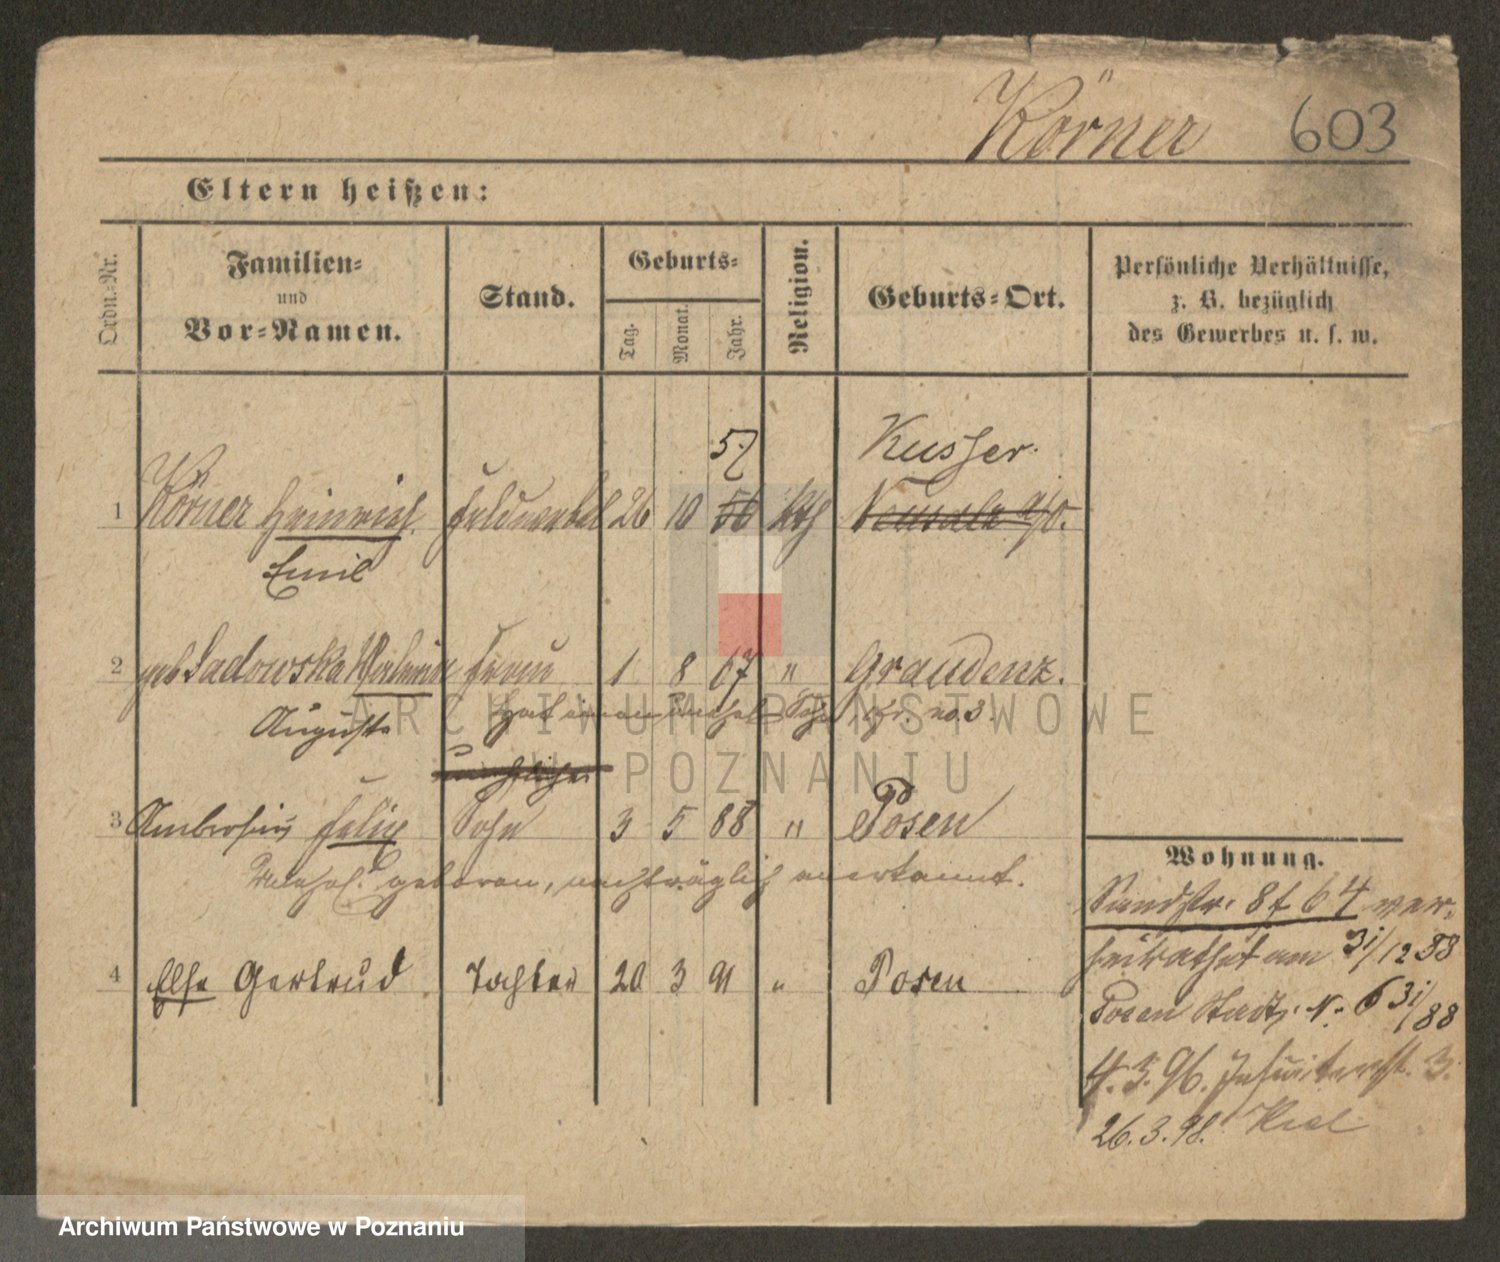 Körner 603
Eltern heißen:
Ordn.-Nr.
Familien-
und
Vor-Namen.
Stand.
Geburts-
Tag.
Monat.
Jahr.
Religion.
Geburts-Ort.
Persönliche Verhältnisse,
z. B. bezüglich
des Gewerbes u. s. w.
57 Kusser.
1 Körner Heinrich Feldwebel 26 10 56 kth Neusalz a/O.
Emil
2 geb Sadowska Valeria Frau 1 8 67 " Graudenz.
Auguste Hat einen unehel. Sohn, cfr. no. 3.
ARCHIWUM PAŃSTWOWE
W POZNANIU
3 Ambrosius Felix Sohn 3 5 88 " Posen
Unehel. geboren, nachträglich anerkannt.
4 Else Gertrud Tochter 20 3 91 " Posen
Wohnung.
Sandstr. 8 f 64 ver-
heirathet am 31/12 88
Posen Stadt, N. 6 31/88
4.3.96. Jesuitenstr. 3.
26.3.98. Kiel
Archiwum Państwowe w Poznaniu